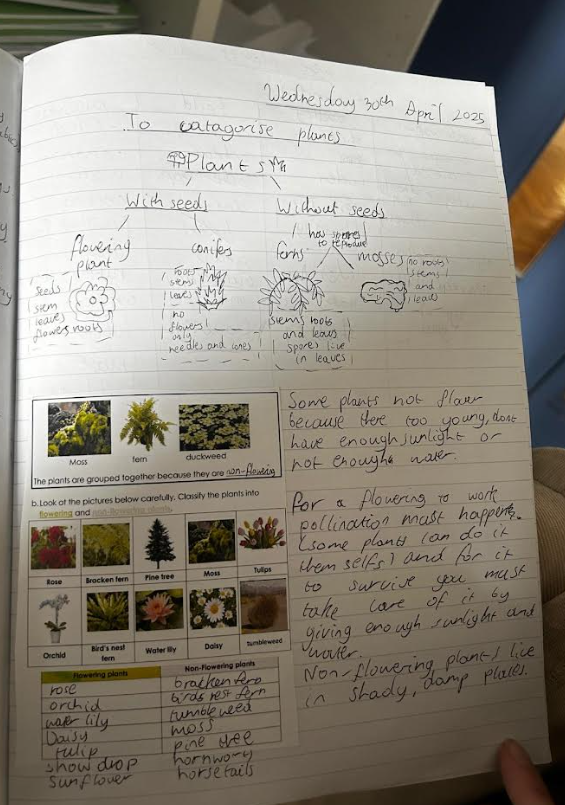 Wednesday 30th April 2025
To catagorise plants
Plants
With seeds
Without seeds
has spores
to reproduce
flowering
plant
conifers
ferns
mosses
seeds
stem
leaves
flowers roots
roots
stems
leaves
no
flowers
only
needles and cones
stems roots
and leaves
spores live
in leaves
no roots
stems
and
leaves
Moss
fern
duckweed
The plants are grouped together because they are non-flowering
b. Look at the pictures below carefully. Classify the plants into
flowering and non-flowering plants.
Rose
Bracken fern
Pine tree
Moss
Tulips
Orchid
Bird's nest
fern
Water lily
Daisy
tumbleweed
Flowering plants
Non-Flowering plants
rose
orchid
water lily
Daisy
tulip
snow drop
sunflower
bracken fern
birds nest fern
tumble weed
moss
pine tree
hornwory
horsetails
Some plants not flower
because there too young, dont
have enough sunlight or
not enough water.
For a flowering to work
pollination must happen.
(some plants can do it
them selfs) and for it
to survive you must
take care of it by
giving enough sunlight and
water.
Non-flowering plants live
in shady, damp places.